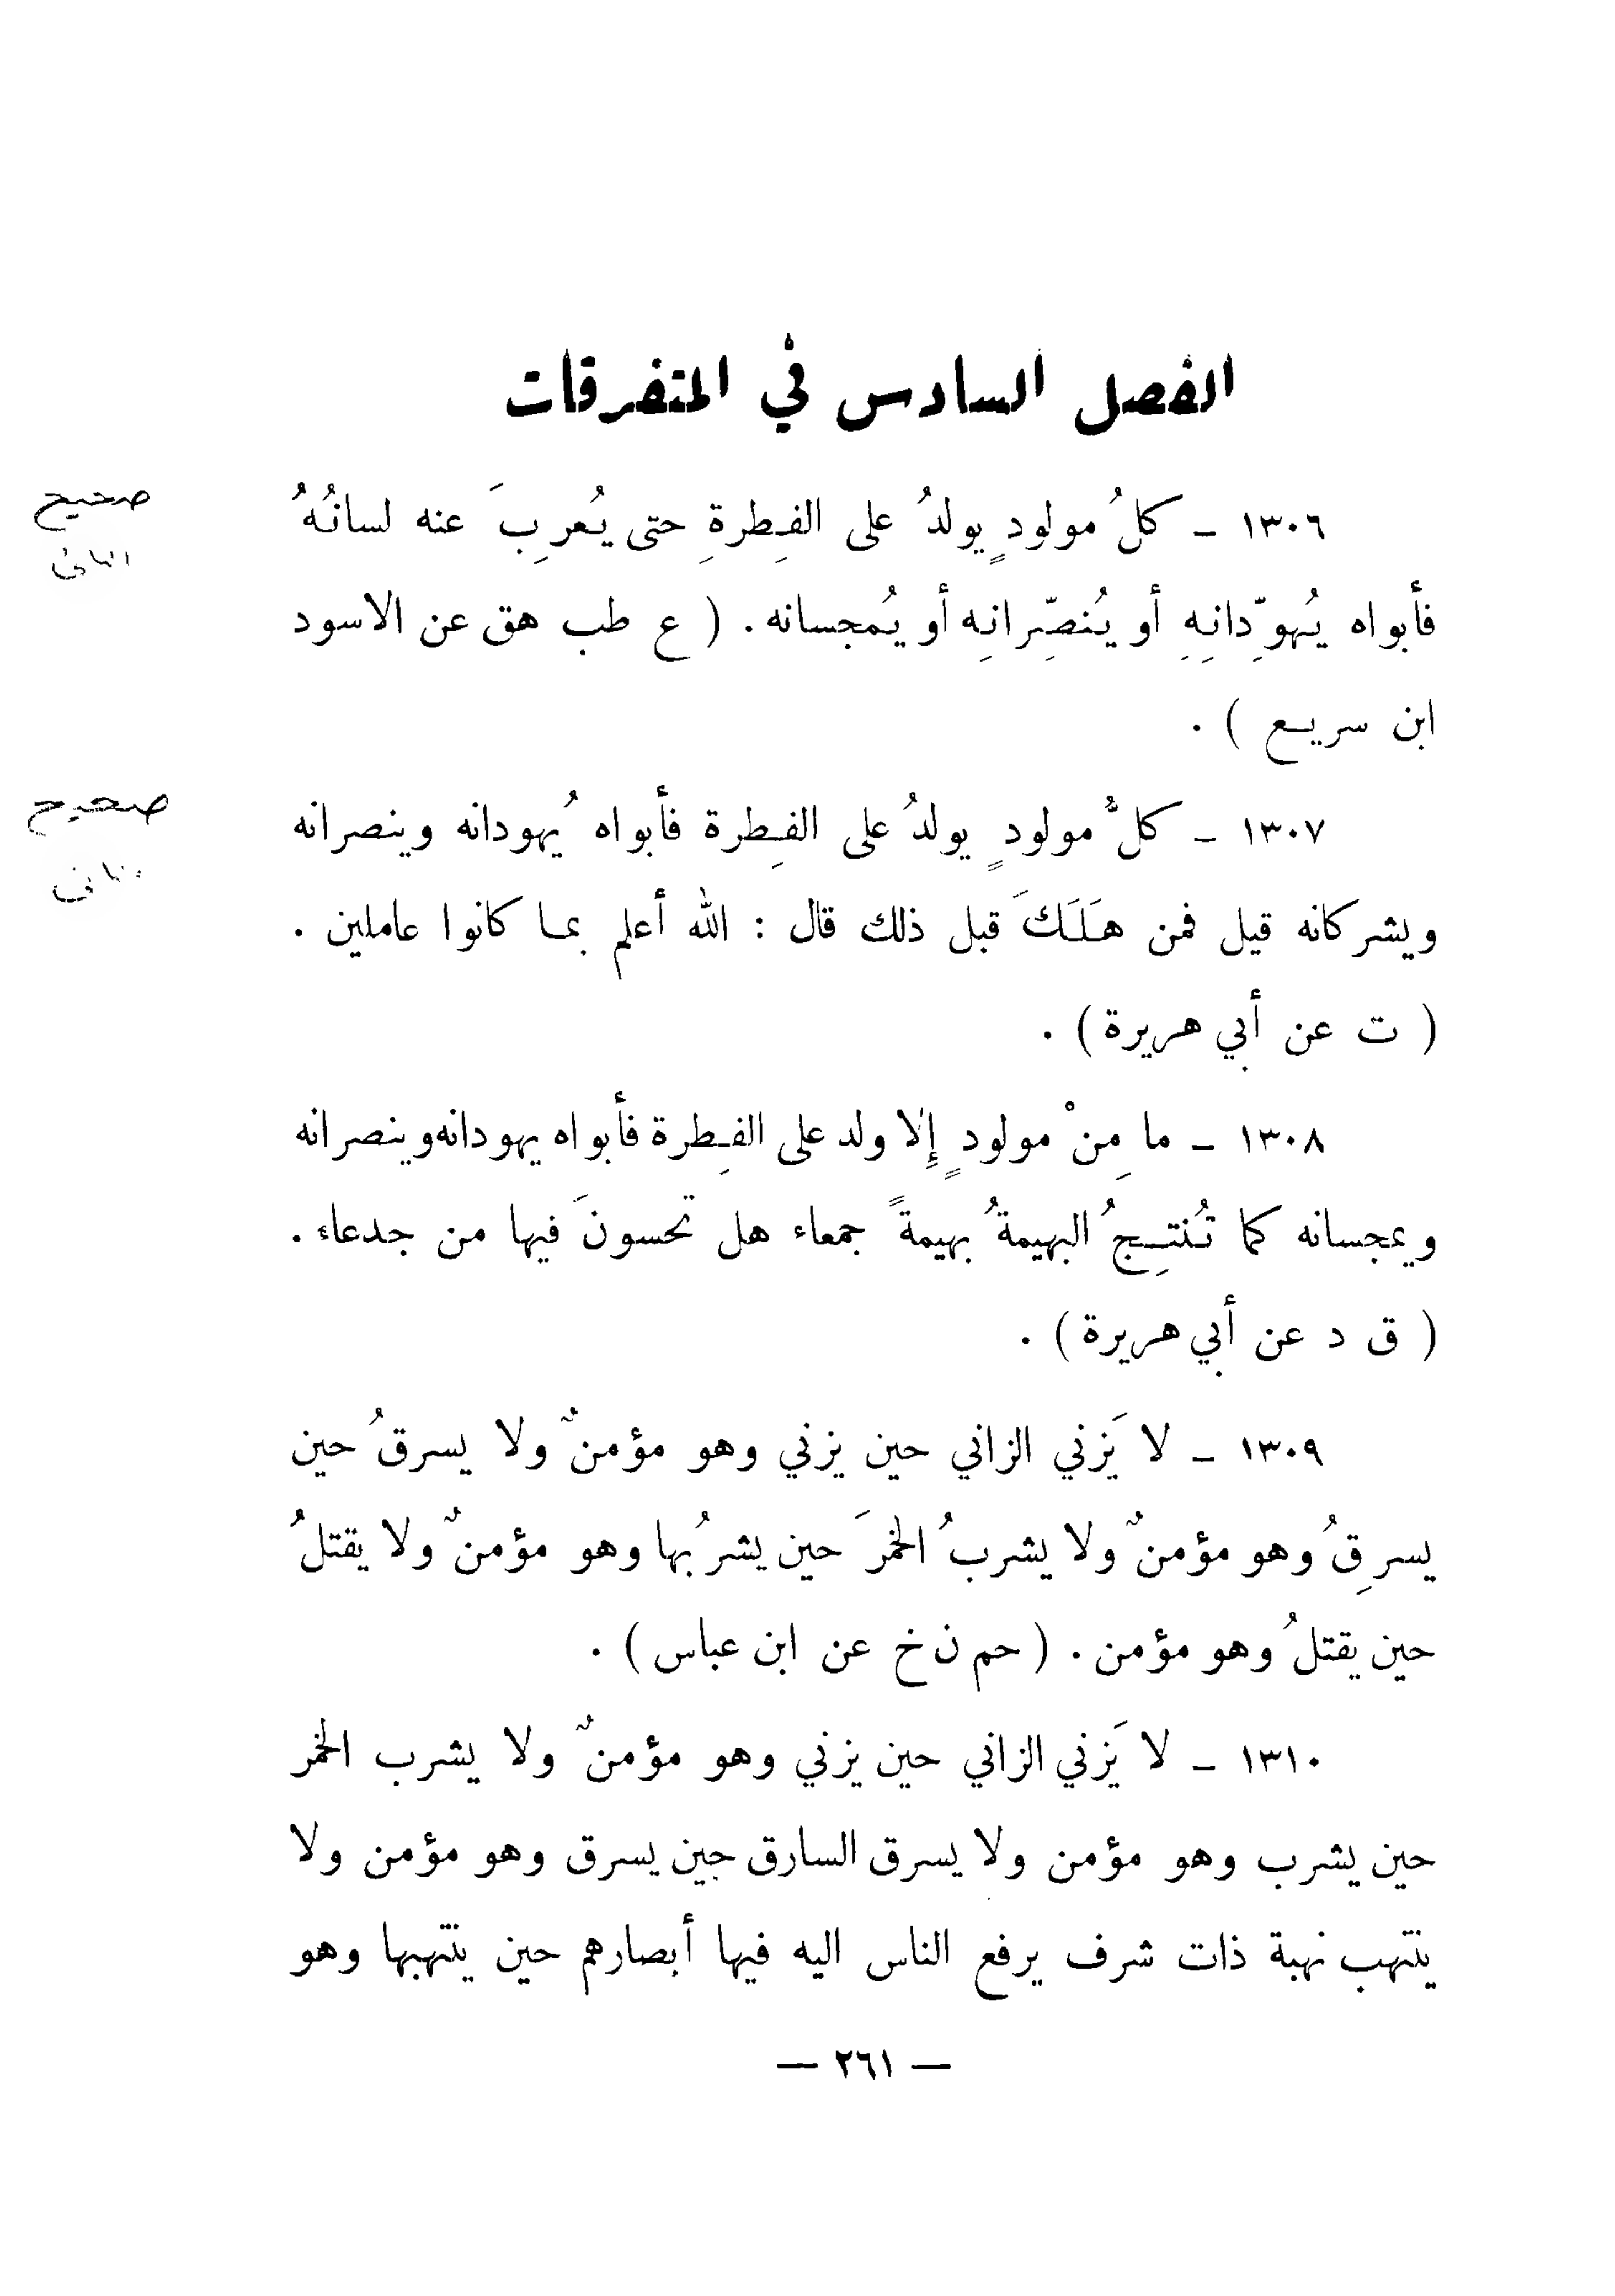 الفصل السادس في المتفرقات
١٣٠٦ ـ كلُ مولودٍ يولدُ على الفِطرةِ حتى يُعرِبَ عنه لسانُهُ
صحيح
فأبواه يُهوِّدانِهِ أو يُنصِّرانِه أو يُمجسانه . ( ع طب هق عن الاسود
ابن سريع ) .
١٣٠٧ ـ كلُّ مولودٍ يولدُ على الفِطرة فأبواه يُهودانه وينصرانه
صحيح
ويشركانه قيل فمن هَلَكَ قبل ذلك قال : الله أعلم بما كانوا عاملين .
( ت عن أبي هريرة ) .
١٣٠٨ ـ ما مِنْ مولودٍ إِلا ولد على الفِطرة فأبواه يهودانه وينصرانه
ويمجسانه كما تُنتِجُ البهيمةُ بهيمةً جمعاء هل تحسونَ فيها من جدعاء .
( ق د عن أبي هريرة ) .
١٣٠٩ ـ لا يَزني الزاني حين يزني وهو مؤمنٌ ولا يسرقُ حين
يسرِقُ وهو مؤمنٌ ولا يشربُ الخمرَ حين يشربُها وهو مؤمنٌ ولا يقتلُ
حين يقتلُ وهو مؤمن . ( حم ن خ عن ابن عباس ) .
١٣١٠ ـ لا يَزني الزاني حين يزني وهو مؤمنٌ ولا يشرب الخمر
حين يشرب وهو مؤمن ولا يسرق السارق حين يسرق وهو مؤمن ولا
ينتهب نهبة ذات شرف يرفع الناس اليه فيها أبصارهم حين ينتهبها وهو
— ٢٦١ —